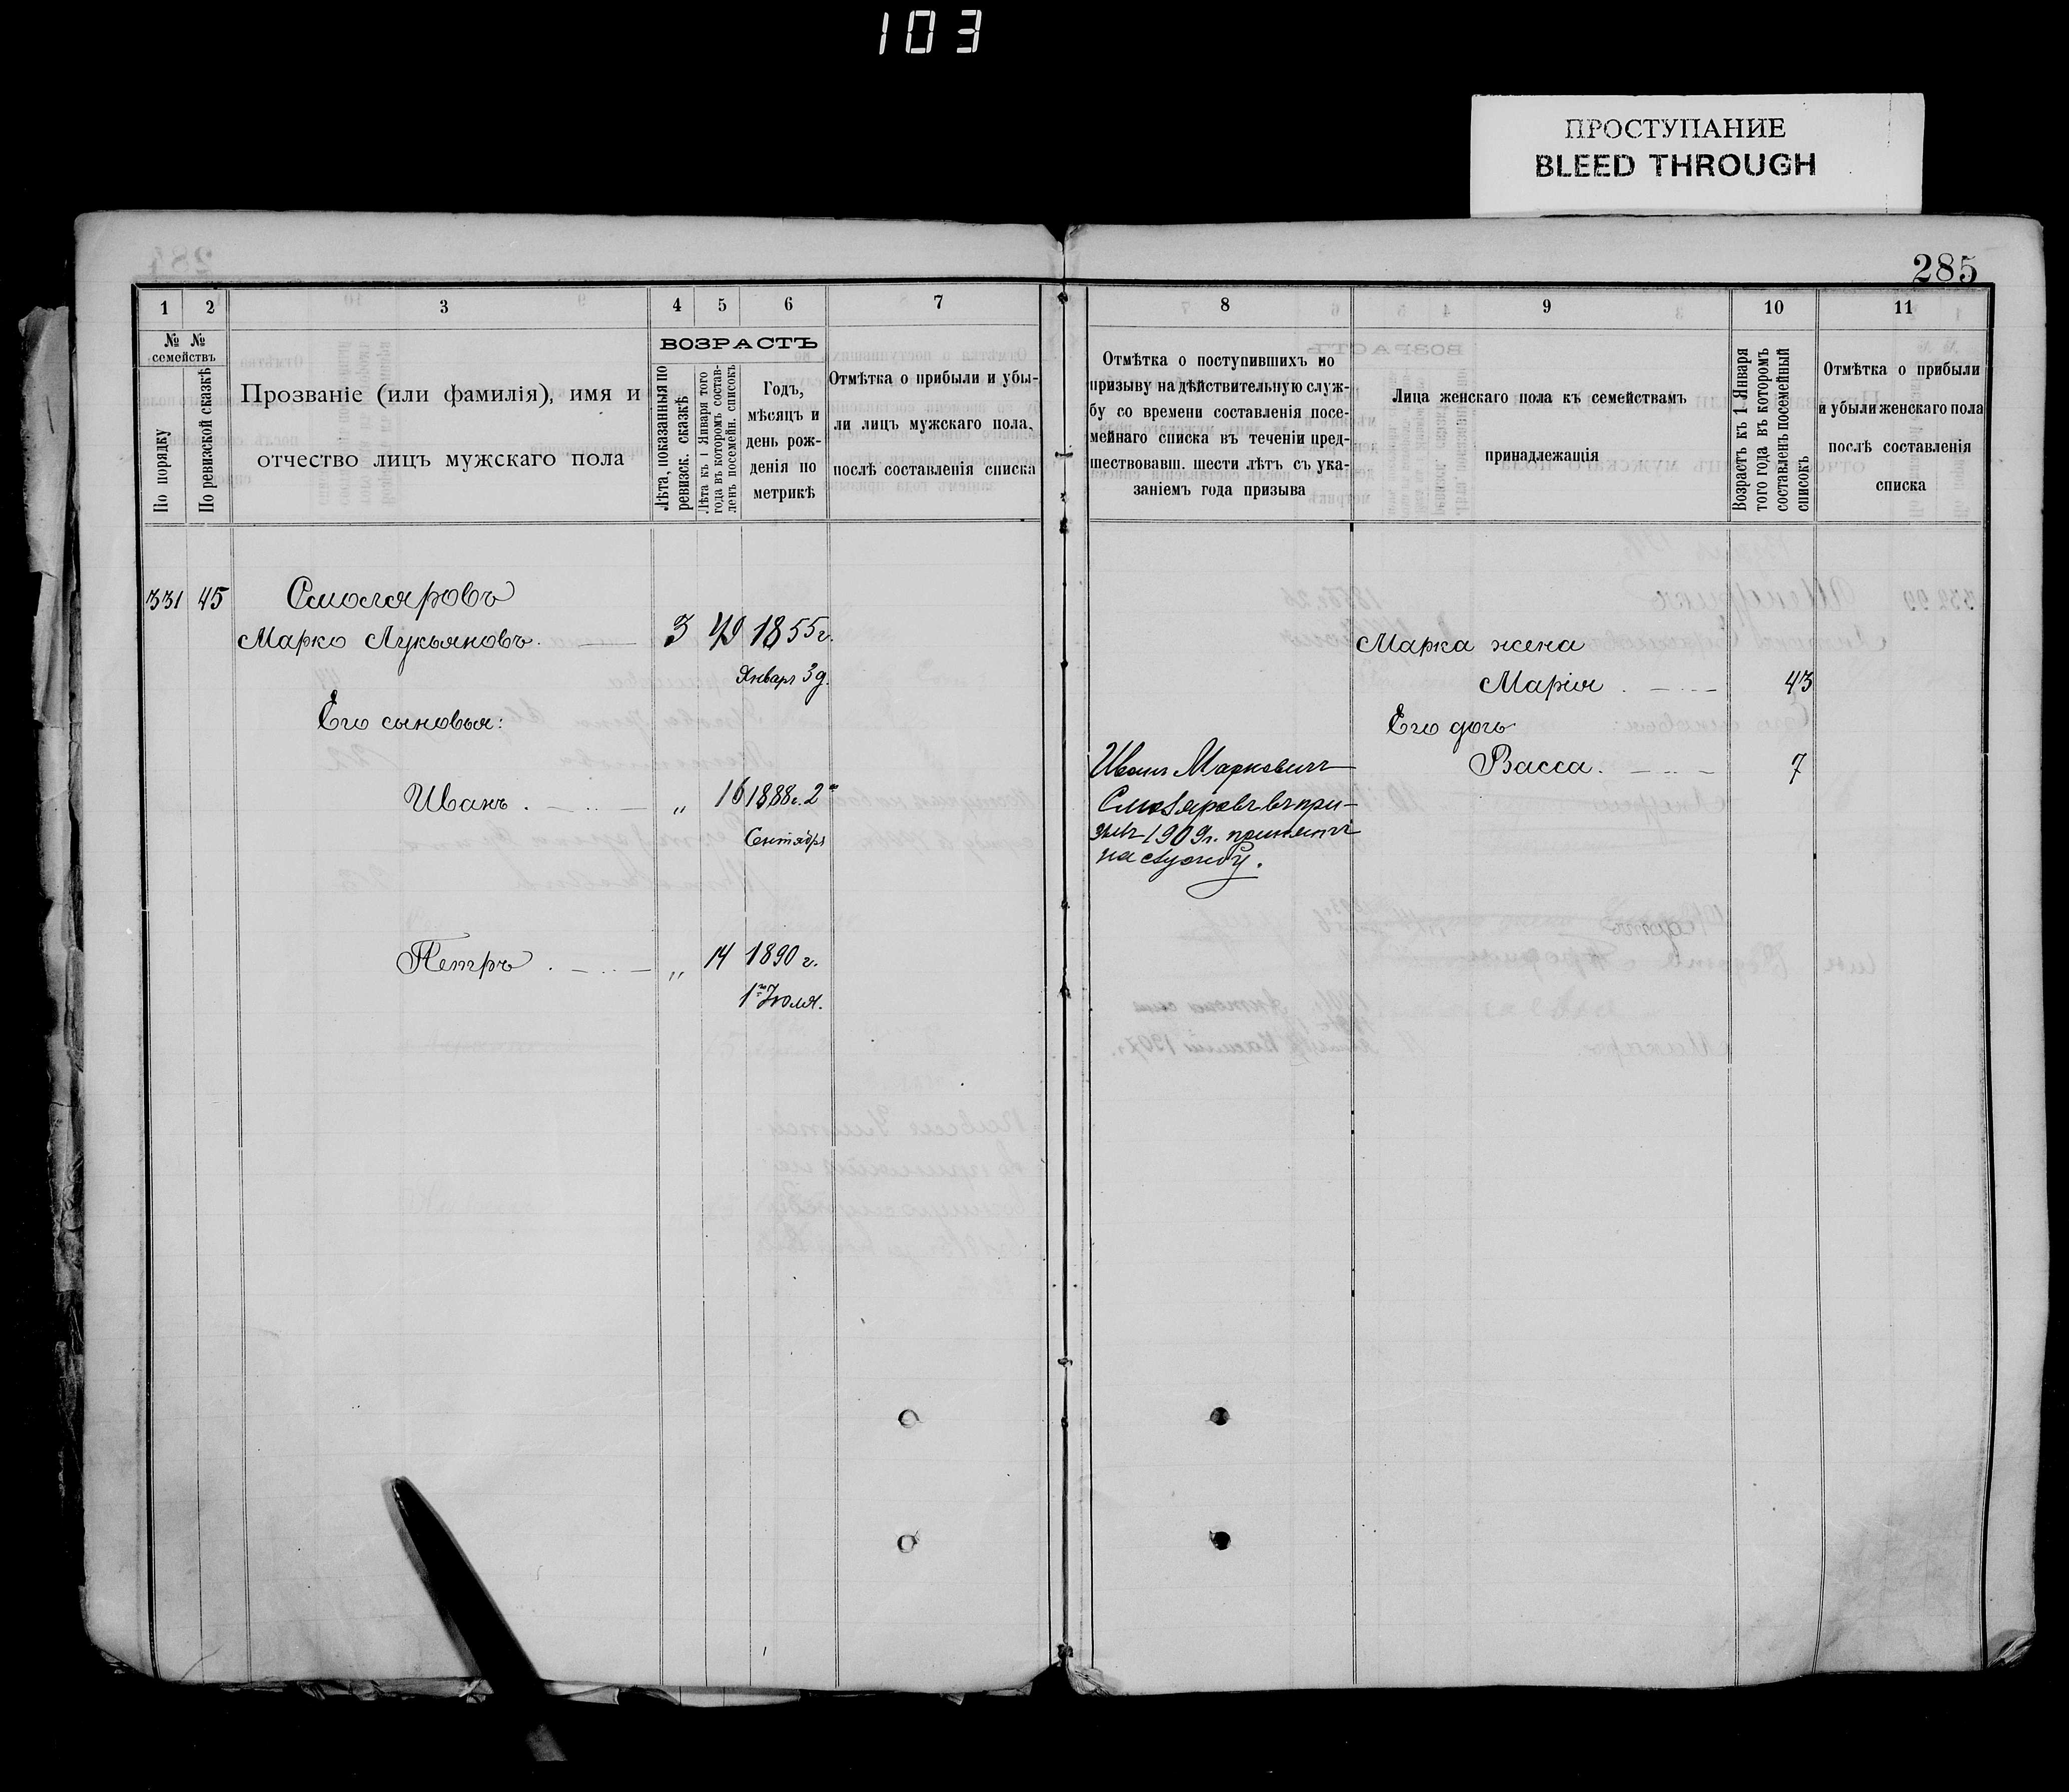 103
ПРОСТУПАНИЕ
BLEED THROUGH
285
1 2 3 4 5 6 7
№ № семействъ
По порядку
По ревизской сказкѣ
Прозваніе (или фамилія), имя и
отчество лицъ мужскаго пола
ВОЗРАСТЪ
Лѣта, показанныя по
ревизск. сказкѣ
Лѣта къ 1 Января того
года въ которомъ состав-
ленъ посемейн. списокъ
Годъ,
мѣсяцъ и
день рож-
денія по
метрикѣ
Отмѣтка о прибыли и убы-
ли лицъ мужскаго пола,
послѣ составленія списка
331 45 Смоляровъ
Марко Лукьяновъ. 3 49 1855 г.
Января 3 д.
Его сыновья:
Иванъ . „ 16 1888 г. 2
Сентября
Петръ . „ 14 1890 г.
1го Іюля.
8 9 10 11
Отмѣтка о поступившихъ по
призыву на дѣйствительную служ-
бу со времени составленія посе-
мейнаго списка въ теченіи пред-
шествовавш. шести лѣтъ съ ука-
заніемъ года призыва
Лица женскаго пола къ семействамъ
принадлежащія
Возрастъ къ 1 Января
того года въ которомъ
составленъ посемейный
списокъ
Отмѣтка о прибыли
и убыли женскаго пола
послѣ составленія
списка
Марка жена
Марія . 43
Его дочь
Васса . 7
Иванъ Марковичъ
Смоляровъ въ при-
зывъ 1909 г. принятъ
на службу.